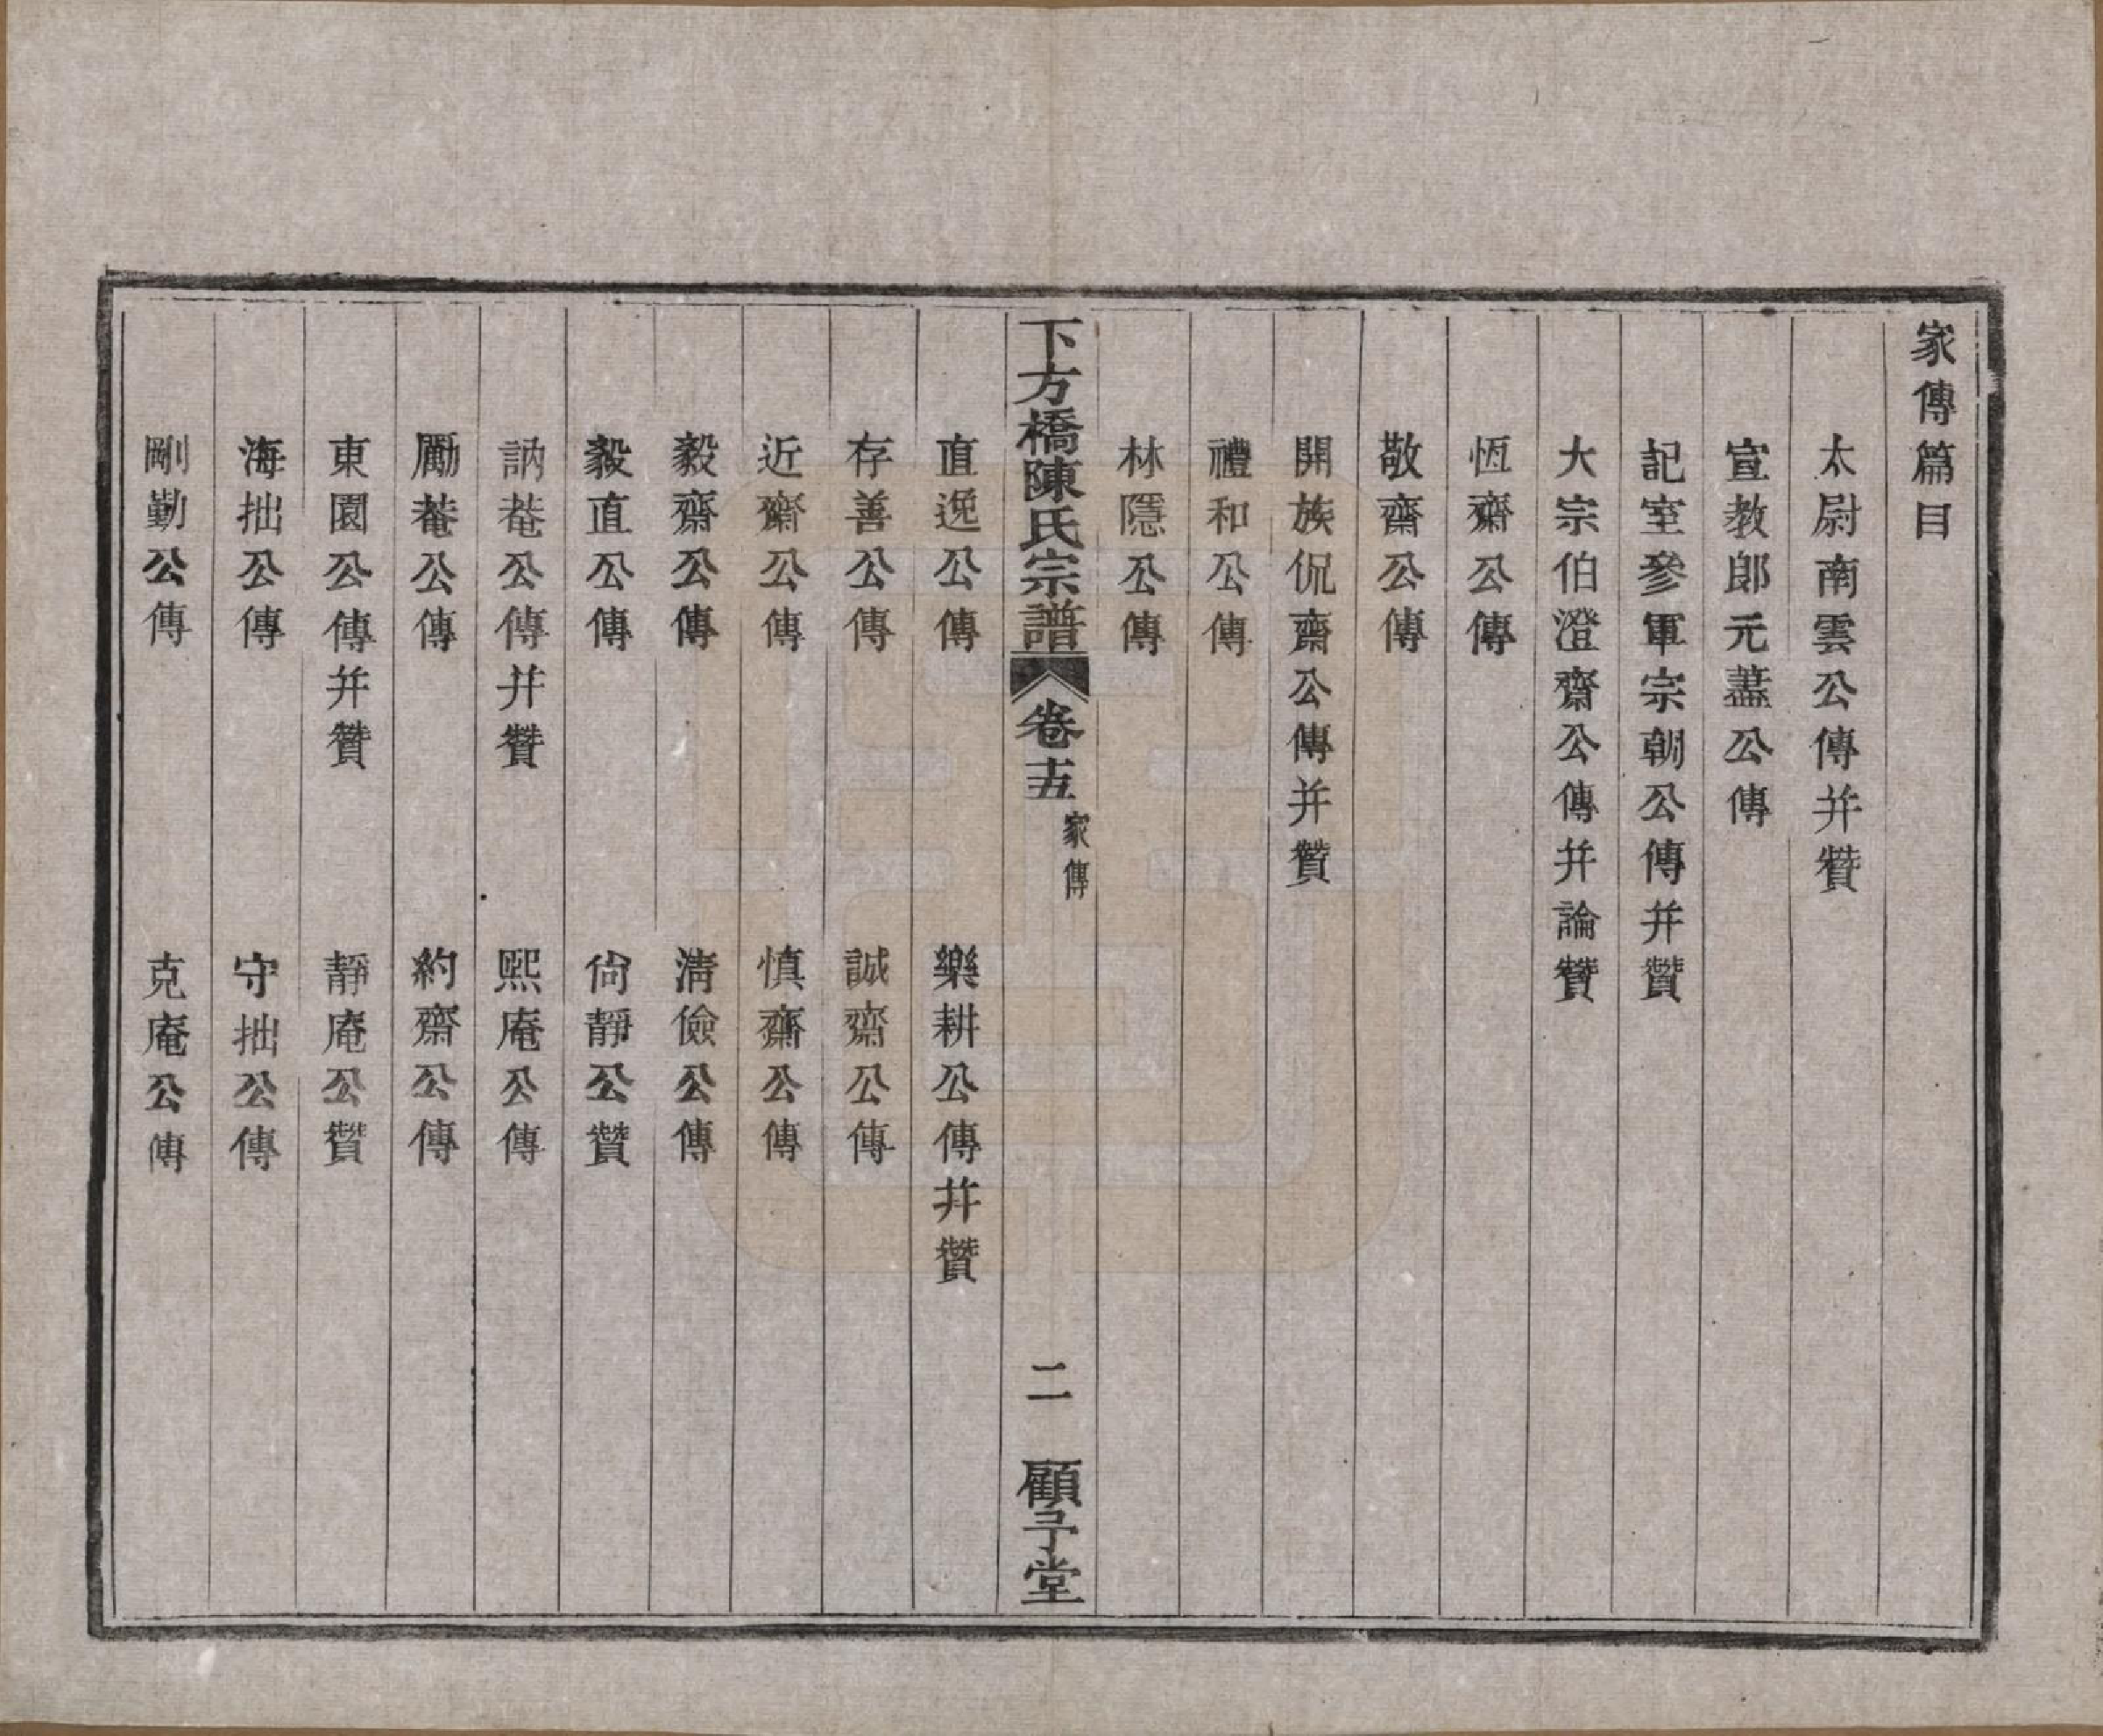 家傳篇目
太尉南雲公傳并贊
宣教郎元藎公傳
記室參軍宗朝公傳并贊
大宗伯澄齋公傳并論贊
恆齋公傳
敬齋公傳
開族侃齋公傳并贊
禮和公傳
林隱公傳
下方橋陳氏宗譜 卷十五 家傳 二 顧予堂
直逸公傳 樂耕公傳并贊
存善公傳 誠齋公傳
近齋公傳 慎齋公傳
毅齋公傳 清儉公傳
毅直公傳 尙靜公贊
訥菴公傳并贊 熙庵公傳
勵菴公傳 約齋公傳
東園公傳并贊 靜庵公贊
海拙公傳 守拙公傳
剛勤公傳 克庵公傳